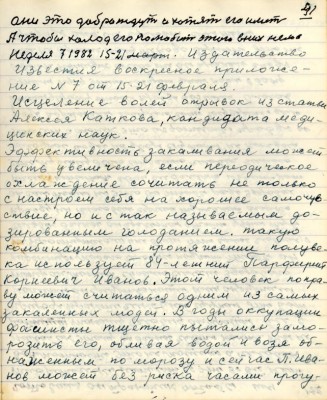 41
они это добра ждут и хотят его иметь
А чтобы холод его полюбить этого в них нема
Неделя 7 1982 15-21 март. Издательство
Известия воскресное приложе-
ние N 7 от 15 21 февраля
Исцеление волей отрывок из статьи
Алексея Каткова, кандидата меди-
цинских наук.
Эффективность закаливания может
быть увеличена, если переодическое
охлаждение сочитать не только
с настроем себя на хорошее самочув-
ствие, но и с так называемым до-
зированным голоданием. такую
комбинацию на протяжение полуве-
ка использует 84-летний Парфирий
Корнеевич Иванов. Этот человек по пра-
ву может считаться одним из самых
закаленных людей. В годы оккупации
фашисты тщетно пытались замо-
розить его, обливая водой и возя об-
наженным по морозу и сейчас П. Ива-
нов может без риска часами прогу-